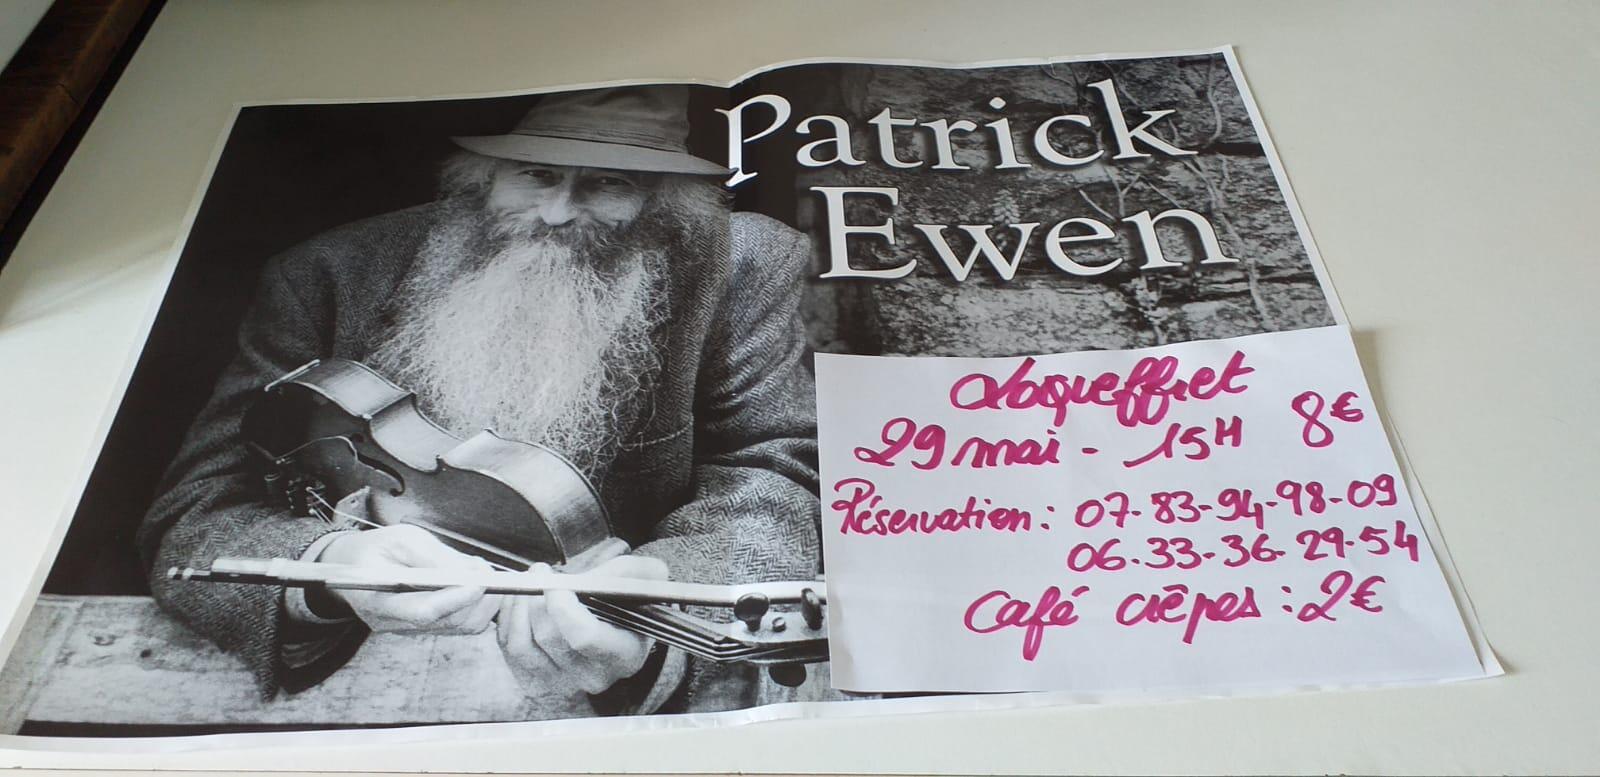 Patrick
Ewen
Loqueffret
29 mai - 15H 8€
Réservation : 07-83-94-98-09
06.33-36-29-54
Café crêpes : 2€